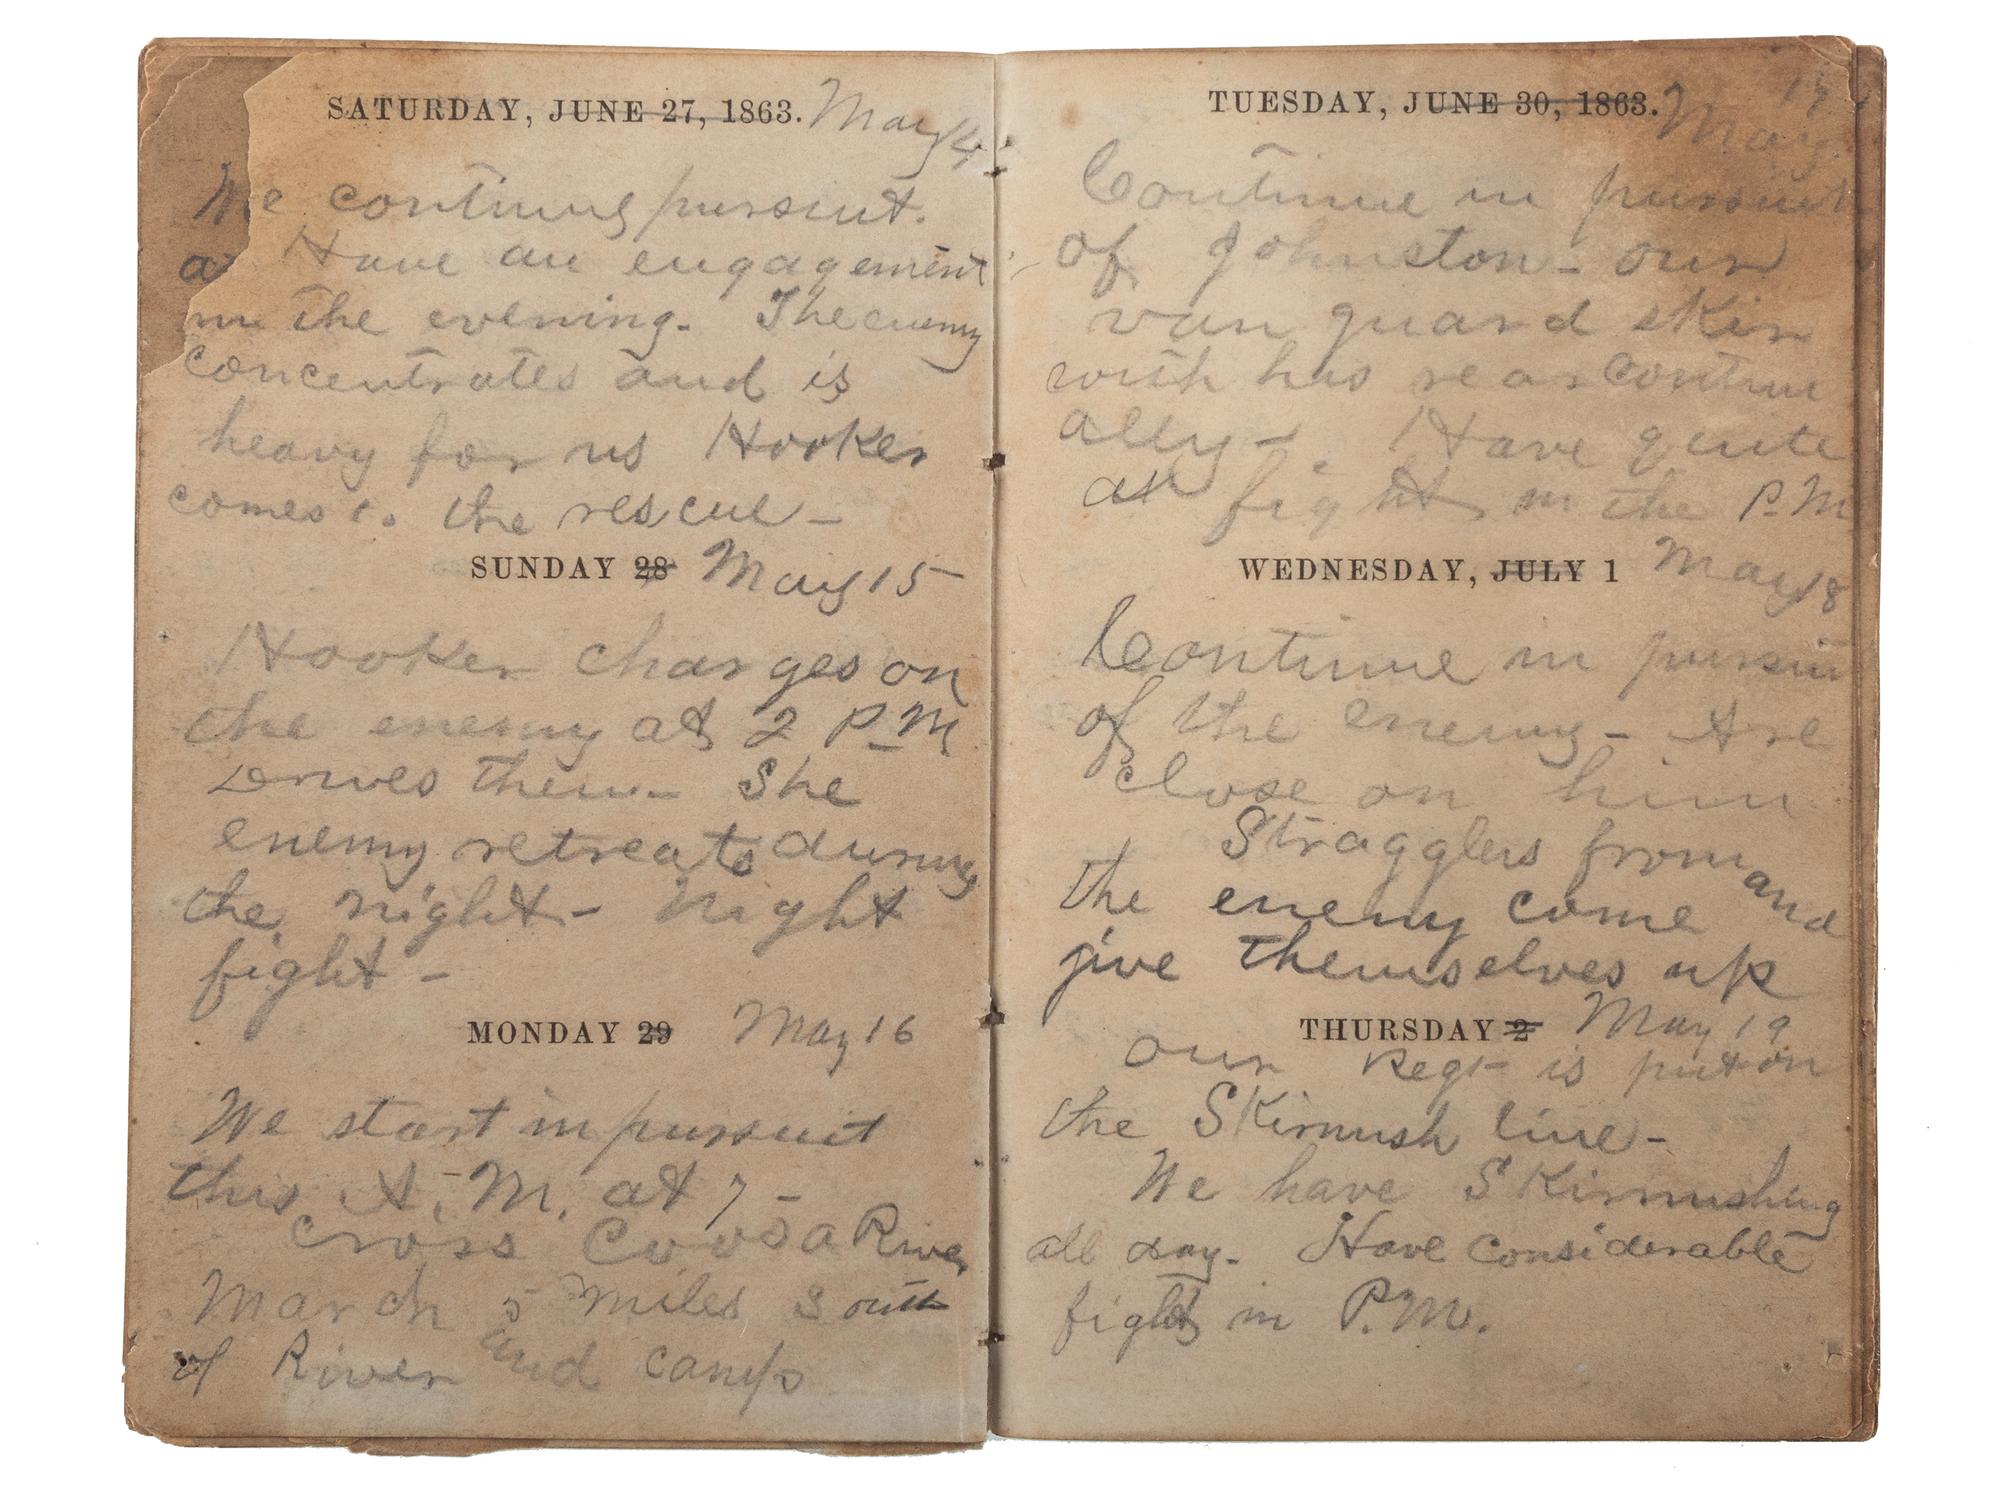 SATURDAY, JUNE 27, 1863. May 14
We continue pursuit.
Have an engagement
in the evening. The enemy
concentrates and is
heavy for us Hooker
comes to the rescue –
SUNDAY 28 May 15 –
Hooker charges on
the enemy at 2 P–M
Drives them – She
enemy retreats during
the night – Night
fight –
MONDAY 29 May 16
We start in pursuit
this A.M. at 7 –
cross Coosa River
March 5 miles South
of River and camp
TUESDAY, JUNE 30, 1863. May 17
Continue in pursuit
of Johnston – our
van guard skir
with his rear continu
ally – Have quite
a fight in the P–M
WEDNESDAY, JULY 1 May 18
Continue in pursuit
of the enemy – Are
close on him
Stragglers from
the enemy come and
give themselves up
THURSDAY 2 May 19
our Regt is put on
the Skirmush line –
We have Skirmushing
all day. Have considerable
fight in P.M.